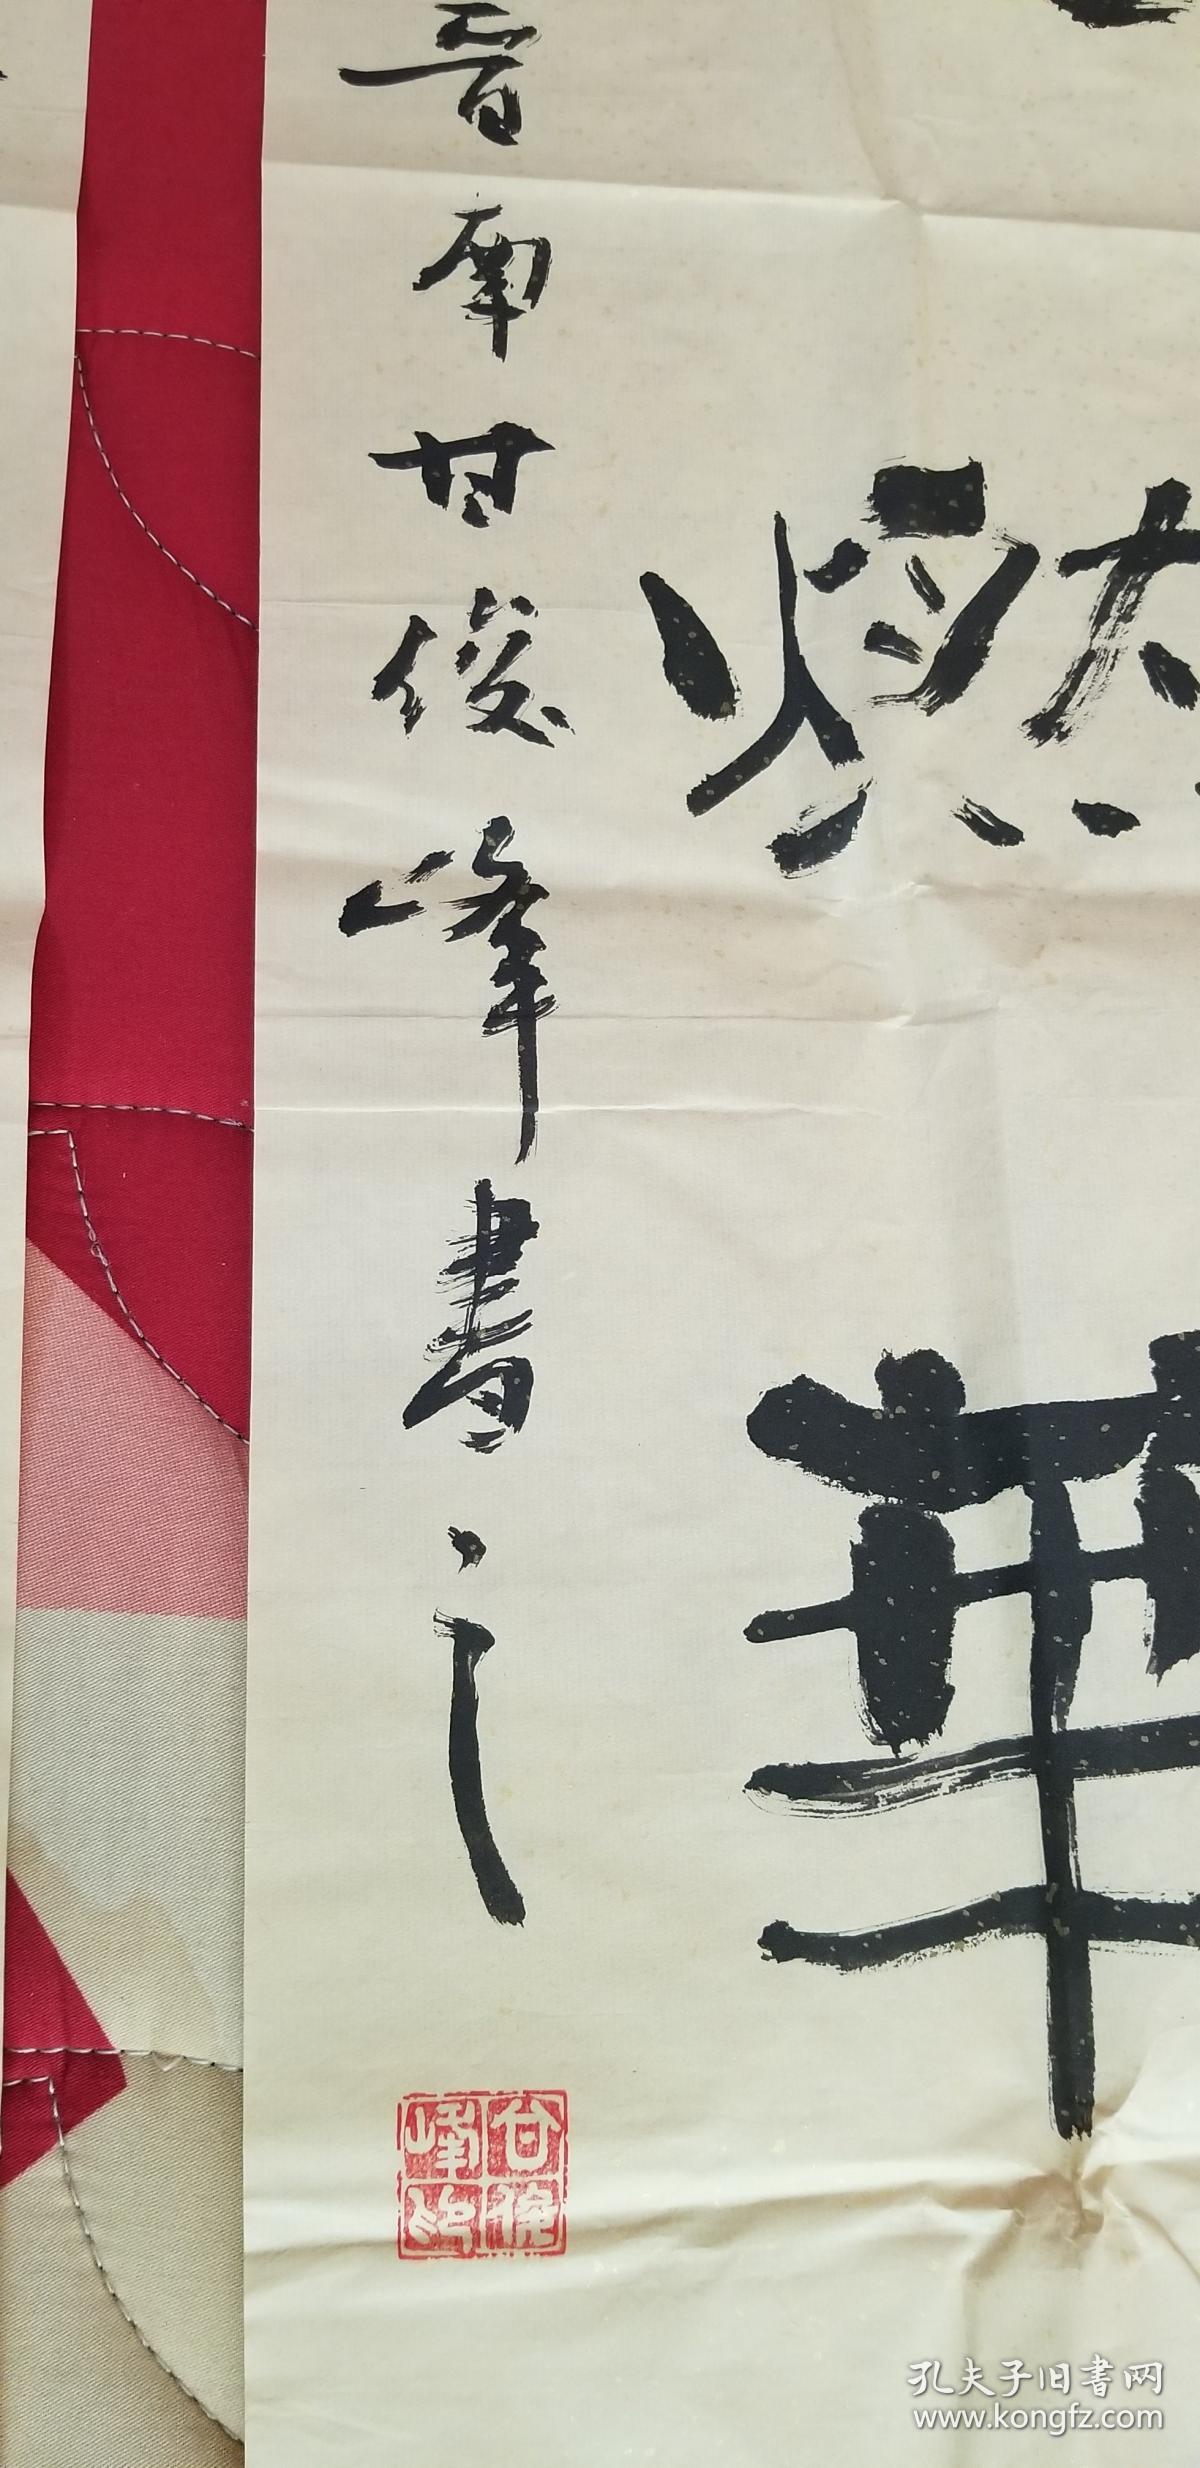 然華
晋南甘俊峰書之
甘俊峰印
孔夫子旧书网
www.kongfz.com